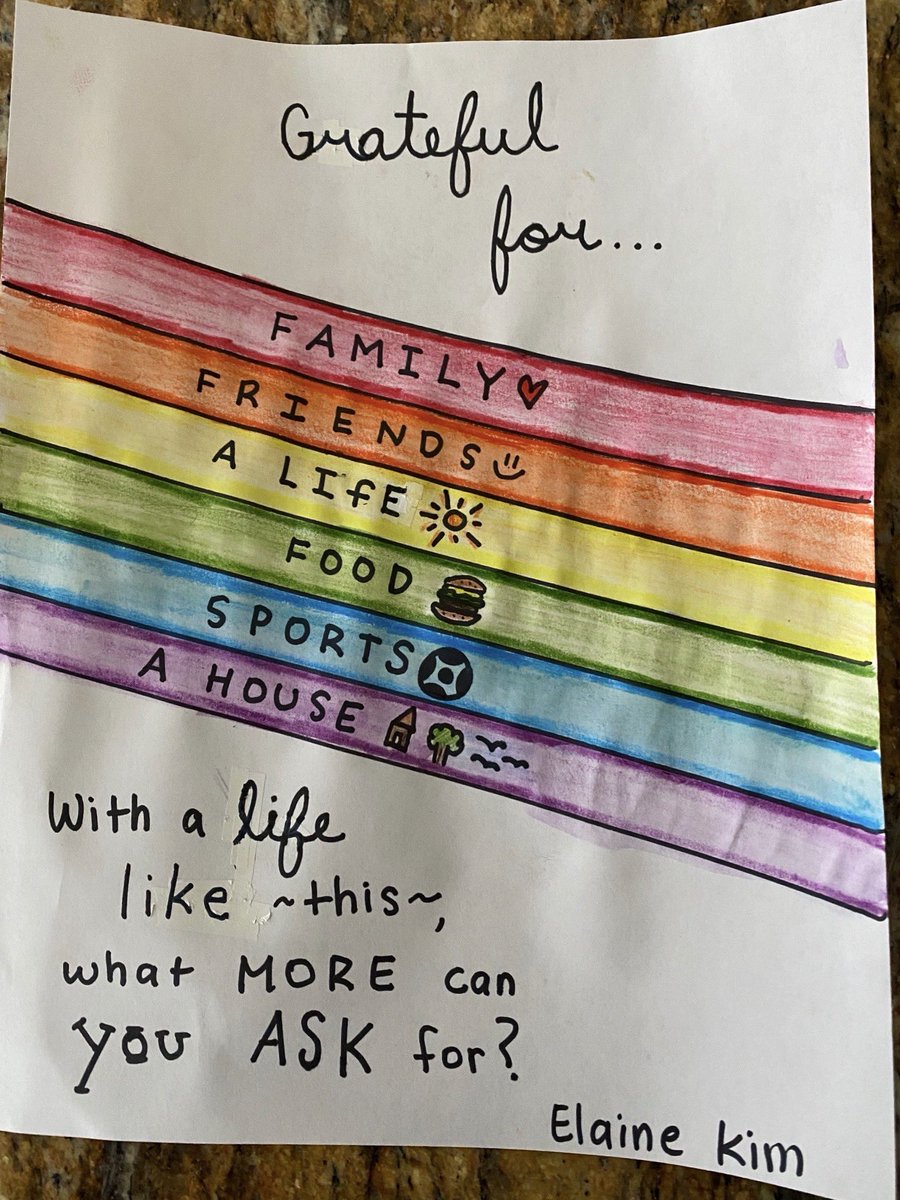 Grateful
for...
FAMILY
FRIENDS
A LIfE
FOOD
SPORTS
A HOUSE
With a life
like ~this~,
what MORE can
you ASK for?
Elaine Kim